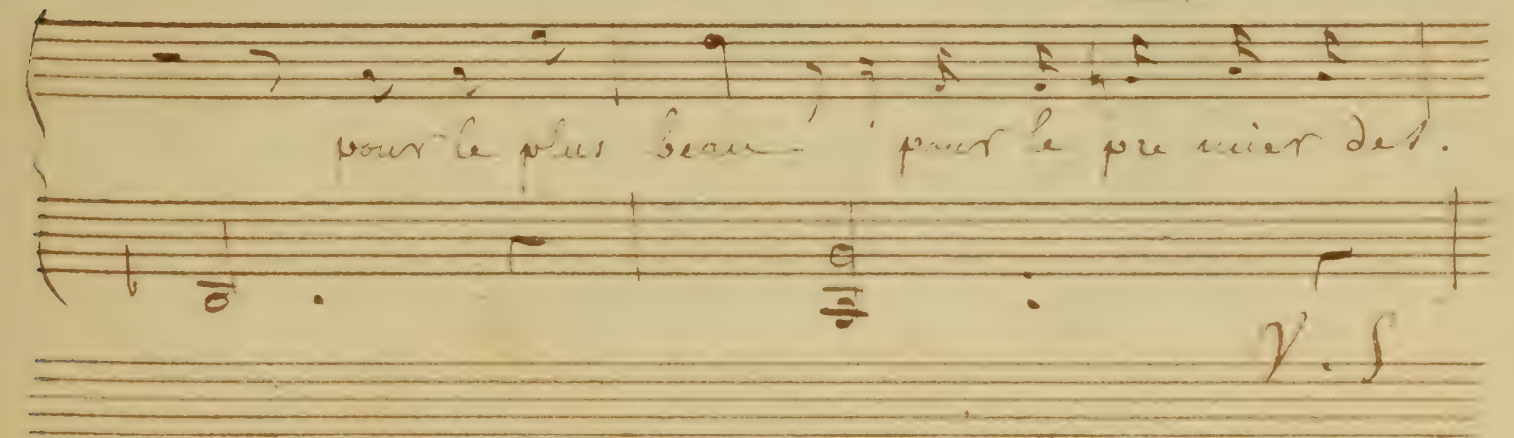 pour le plus beau pour le pre mier des.
V. S